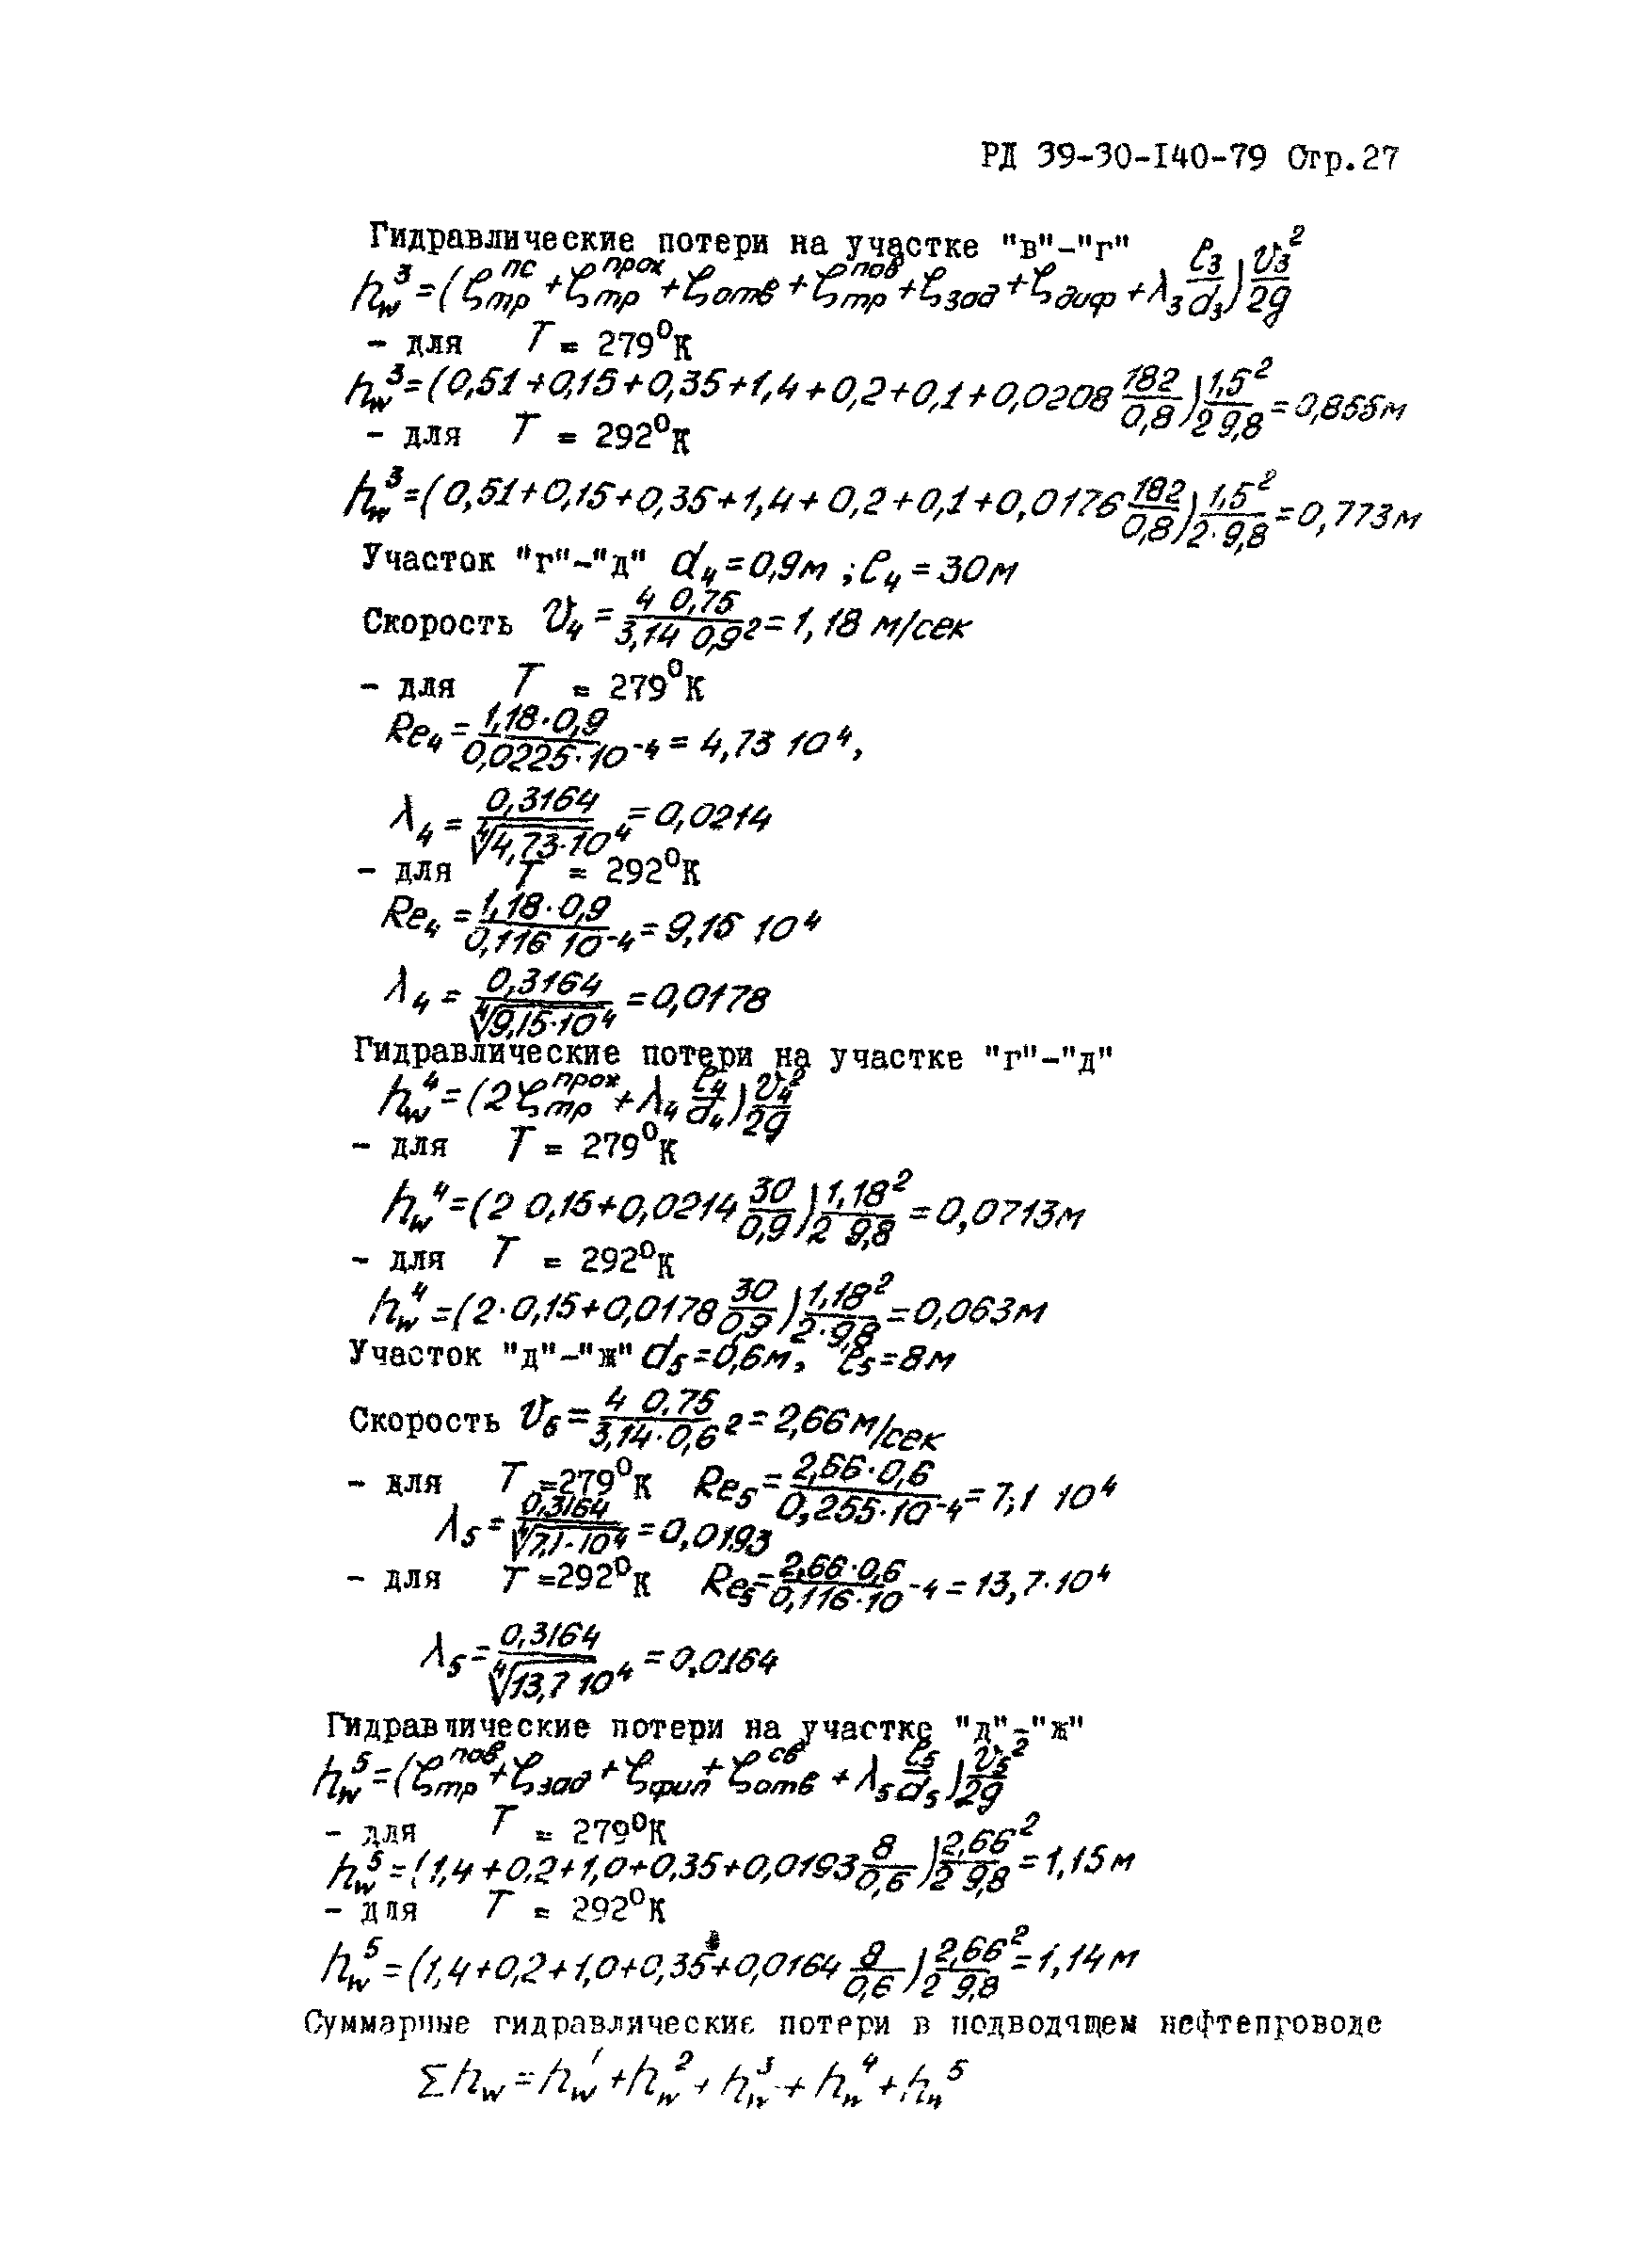 РД 39-30-I40-79 Стр.27
Гидравлические потери на участке "в"-"г"
h_w^3=(ζ_тр^пс+ζ_тр^прох+ζ_отв+ζ_тр^пов+ζ_зад+ζ_диф+λ_3 ℓ_3/d_3) v_3^2/2g
- для T = 279°К
h_w^3=(0,51+0,15+0,35+1,4+0,2+0,1+0,0208 182/0,8) 1,5^2/2 9,8=0,855м
- для T = 292°К
h_w^3=(0,51+0,15+0,35+1,4+0,2+0,1+0,0176 182/0,8) 1,5^2/2·9,8=0,773м
Участок "г"-"д" d_4=0,9м ; ℓ_4=30м
Скорость v_4= 4 0,75/3,14 0,9^2=1,18 м/сек
- для T = 279°К
Re_4= 1,18·0,9/0,0225·10^-4= 4,73 10^4,
λ_4= 0,3164/∜4,73·10^4=0,0214
- для T = 292°К
Re_4= 1,18·0,9/0,116 10^-4= 9,15 10^4
λ_4= 0,3164/∜9,15·10^4=0,0178
Гидравлические потери на участке "г"-"д"
h_w^4=(2ζ_тр^прох+λ_4 ℓ_4/d_4) v_4^2/2g
- для T = 279°К
h_w^4=(2 0,15+0,0214 30/0,9) 1,18^2/2 9,8=0,0713м
- для T = 292°К
h_w^4=(2·0,15+0,0178 30/0,9) 1,18^2/2·9,8=0,063м
Участок "д"-"ж" d_5=0,6м, ℓ_5=8м
Скорость v_5= 4 0,75/3,14·0,6^2=2,66м/сек
- для T =279°К Re_5= 2,66·0,6/0,255·10^-4=7,1 10^4
λ_5= 0,3164/∜7,1·10^4=0,0193
- для T =292°К Re_5= 2,66·0,6/0,116·10^-4=13,7·10^4
λ_5= 0,3164/∜13,7 10^4=0,0164
Гидравлические потери на участке "д"-"ж"
h_w^5=(ζ_тр^пов+ζ_зад+ζ_фил+ζ_отв^св+λ_5 ℓ_5/d_5) v_5^2/2g
- для T = 279°К
h_w^5=(1,4+0,2+1,0+0,35+0,0193 8/0,6) 2,66^2/2 9,8=1,15м
- для T = 292°К
h_w^5=(1,4+0,2+1,0+0,35+0,0164 8/0,6) 2,66^2/2 9,8=1,14м
Суммарные гидравлические потери в подводящем нефтепроводе
Σh_w=h_w^1+h_w^2+h_w^3+h_w^4+h_w^5